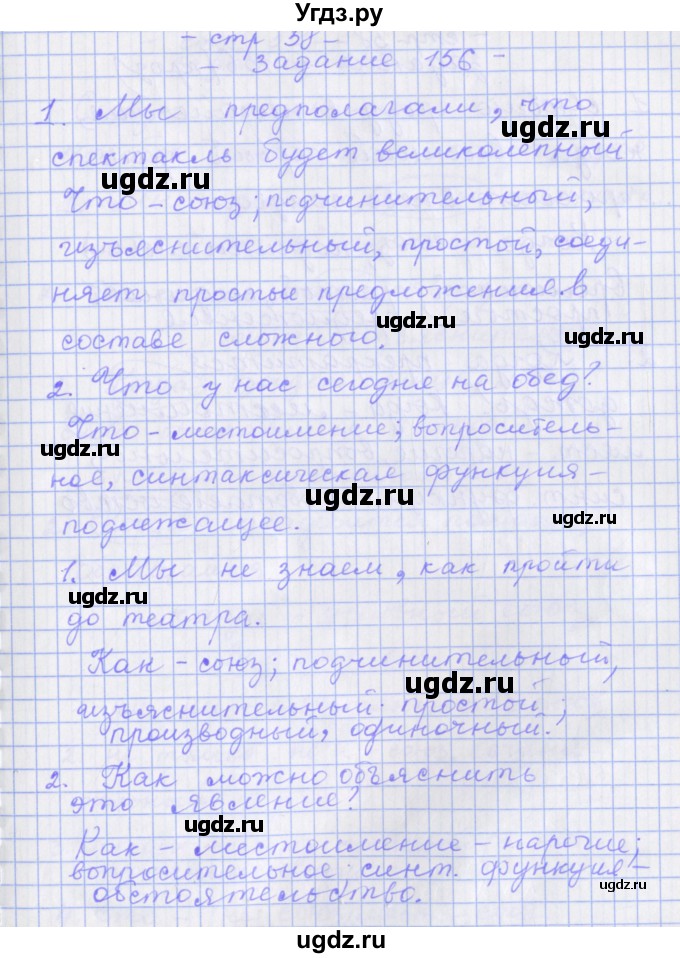 Угдз.ру
- стр 58 -
- Задание 156 -
1. Мы предполагали, что
ugdz.ru
спектакль будет великолепный
ugdz.ru
Что - союз; подчинительный,
ugdz.ru
изъяснительный, простой, соеди-
няет простые предложение в
ugdz.ru
составе сложного.
ugdz.ru
2. Что у нас сегодня на обед?
Что - местоимение; вопроситель-
ugdz.ru
ное, синтаксическая функция -
ugdz.ru
подлежащее.
ugdz.ru
1. Мы не знаем, как пройти
ugdz.ru
до театра.
Как - союз; подчинительный,
ugdz.ru
изъяснительный простой;
производный, одиночный.
2. Как можно объяснить
это явление?
ugdz.ru
Как - местоимение - наречие;
вопросительное синт. функция -
ugdz.ru
обстоятельство.
ugdz.ru